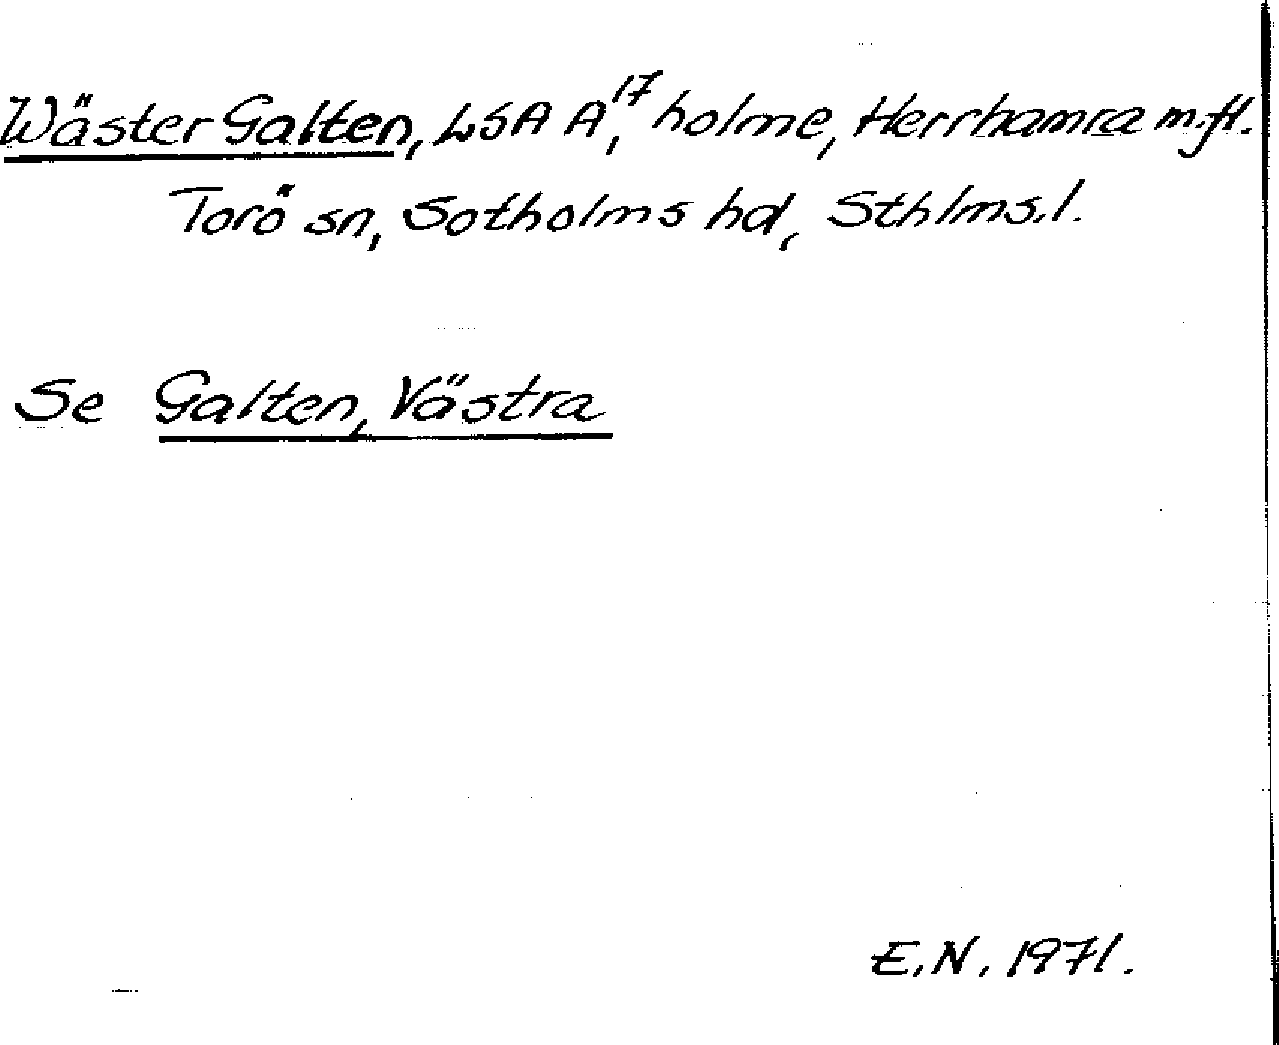 Wäster Galten, LSA A¹⁷, holme, Herrhamra m.fl.
Torö sn, Sotholms hd, Sthlms.l.
Se Galten, Västra
E.N. 1971.